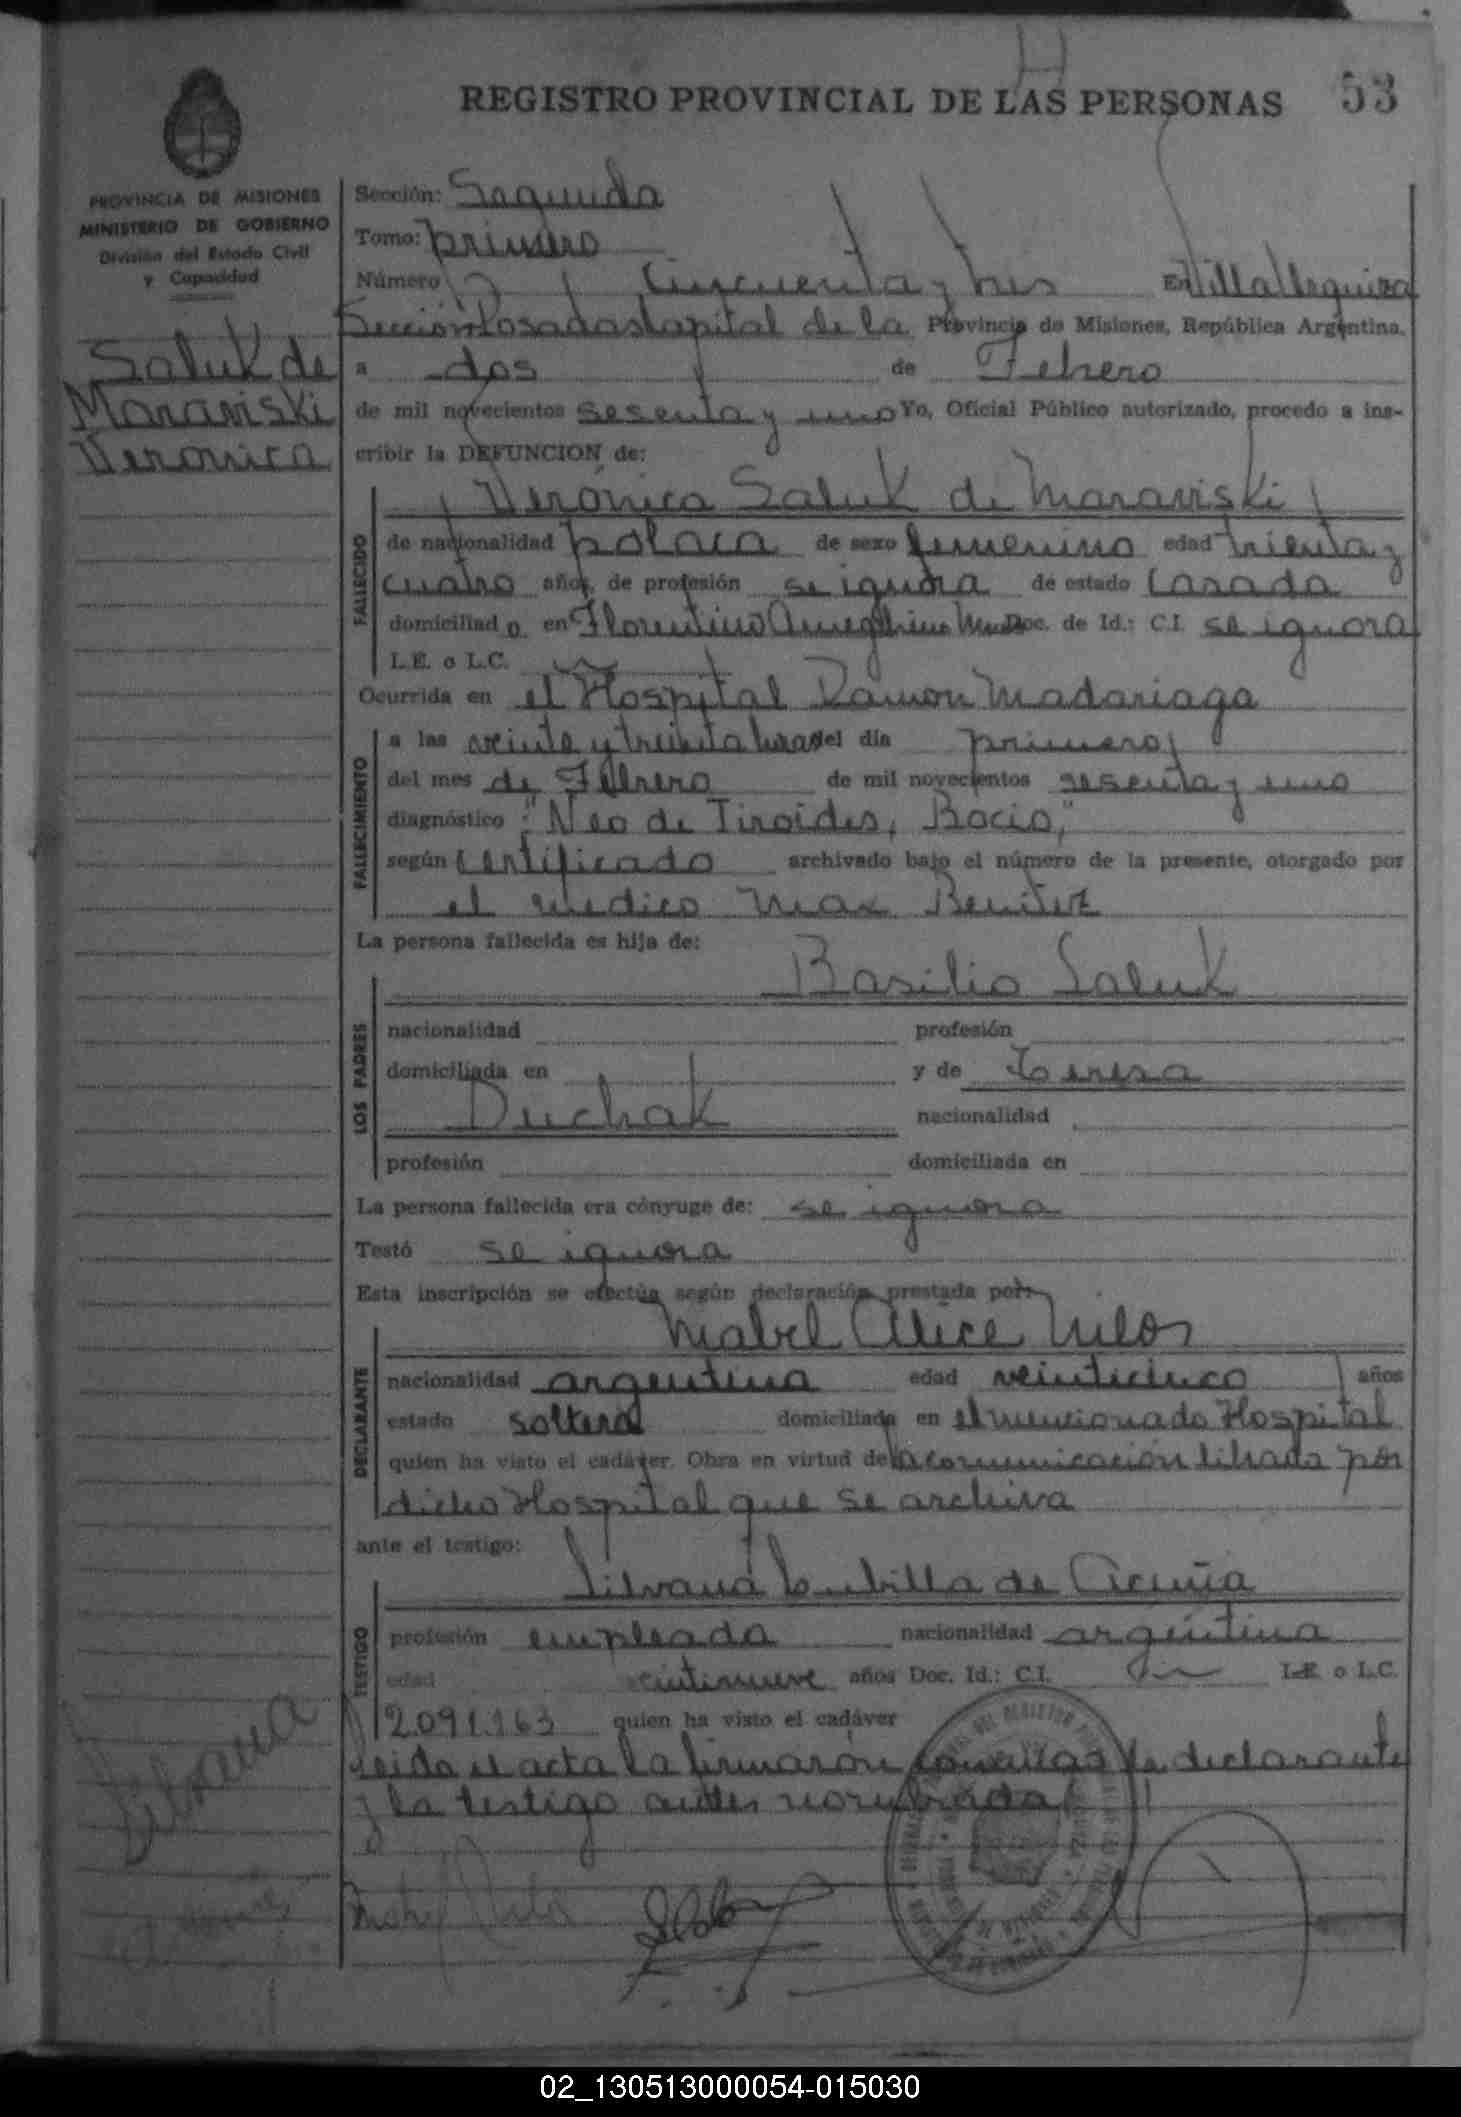 REGISTRO PROVINCIAL DE LAS PERSONAS 53
PROVINCIA DE MISIONES
MINISTERIO DE GOBIERNO
División del Estado Civil
y Capacidad
Saluk de
Maraviski
Veronica
Sección: Segunda
Tomo: primero
Número cincuenta y tres En Villa Urquiza
Sección Posadas Capital de la Provincia de Misiones, República Argentina,
a dos de Febrero
de mil novecientos sesenta y uno Yo, Oficial Público autorizado, procedo a ins-
cribir la DEFUNCION de:
Verónica Saluk de Maraviski
FALLECIDO
de nacionalidad polaca de sexo femenino edad trienta y
cuatro años, de profesión se ignora de estado Casada
domiciliad a en Florentino Ameghino Doc. de Id.: C.I. se ignora
L.E. o L.C.
Ocurrida en el Hospital Ramon Madariaga
FALLECIMIENTO
a las veinte y treinta horas del día primero
del mes de Febrero de mil novecientos sesenta y uno
diagnóstico "Neo de Tiroides, Bocio,"
según Certificado archivado bajo el número de la presente, otorgado por
el medico Max Benitez
La persona fallecida es hija de:
Basilio Saluk
LOS PADRES
nacionalidad profesión
domiciliada en y de Teresa
Duchak nacionalidad
profesión domiciliada en
La persona fallecida era cónyuge de: se ignora
Testó se ignora
Esta inscripción se efectúa según declaración prestada por:
Mabel Alice
DECLARANTE
nacionalidad argentina edad veinticinco años
estado soltera domiciliada en el mencionado Hospital
quien ha visto el cadáver. Obra en virtud de la comunicación librada por
dicho Hospital que se archiva
ante el testigo:
Silvana Cubilla de Acuña
TESTIGO
profesión empleada nacionalidad argentina
edad veintinueve años Doc. Id.: C.I. L.E. o L.C.
2.091.163 quien ha visto el cadáver
Leida el acta la firmaron conmigo la declarante
y la testigo antes nombrada
Silvana
02_130513000054-015030